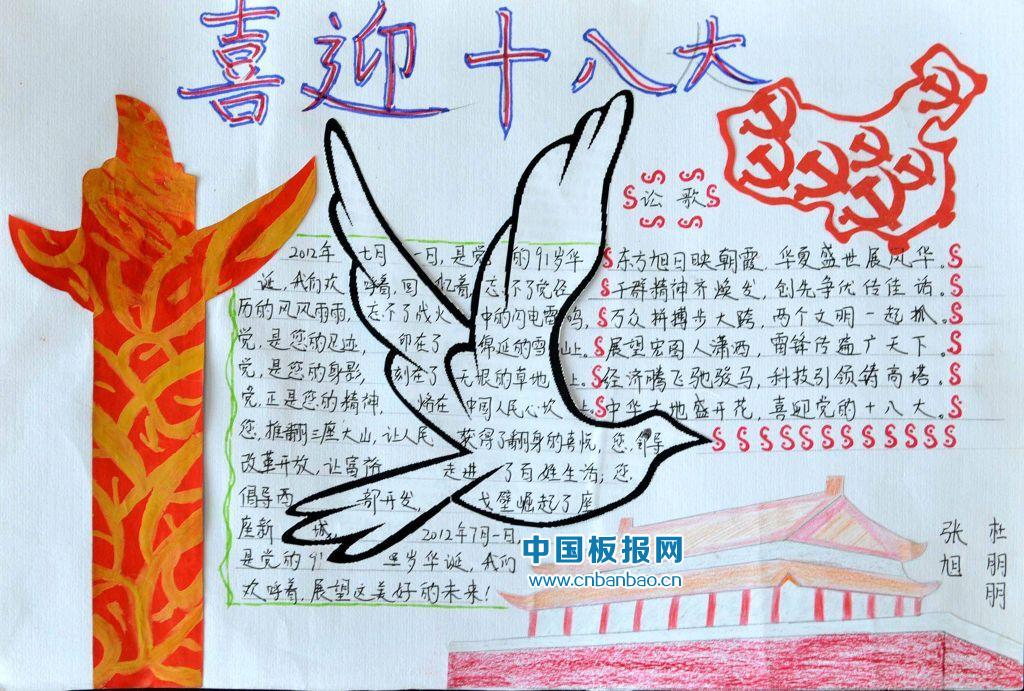 喜迎十八大
讼歌
2012年七月一日,是党的91岁华
诞,我们欢呼着,回忆着,忘不了您经
历的风风雨雨,忘不了战火中的闪电雷鸣,
党,是您的足迹,印在了绵延的雪山上。
党,是您的身影,刻在了无垠的草地上。
党,正是您的精神,烙在中国人民心坎上。
您,推翻三座大山,让人民获得了翻身的喜悦,您,倡导
改革开放,让富裕走进了百姓生活;您,
倡导西部开发,戈壁崛起了座
座新城,2012年7月一日,
是党的91岁华诞,我们
欢呼着,展望这美好的未来!
东方旭日映朝霞,华夏盛世展风华。
干群精神齐焕发,创先争优传佳话。
万众拼搏步大跨,两个文明一起抓。
展望宏图人潇洒,雷锋传遍广天下。
经济腾飞驰骏马,科技引领铸高塔。
中华大地盛开花,喜迎党的十八大。
中国板报网
www.cnbanbao.cn
杜明明
张旭